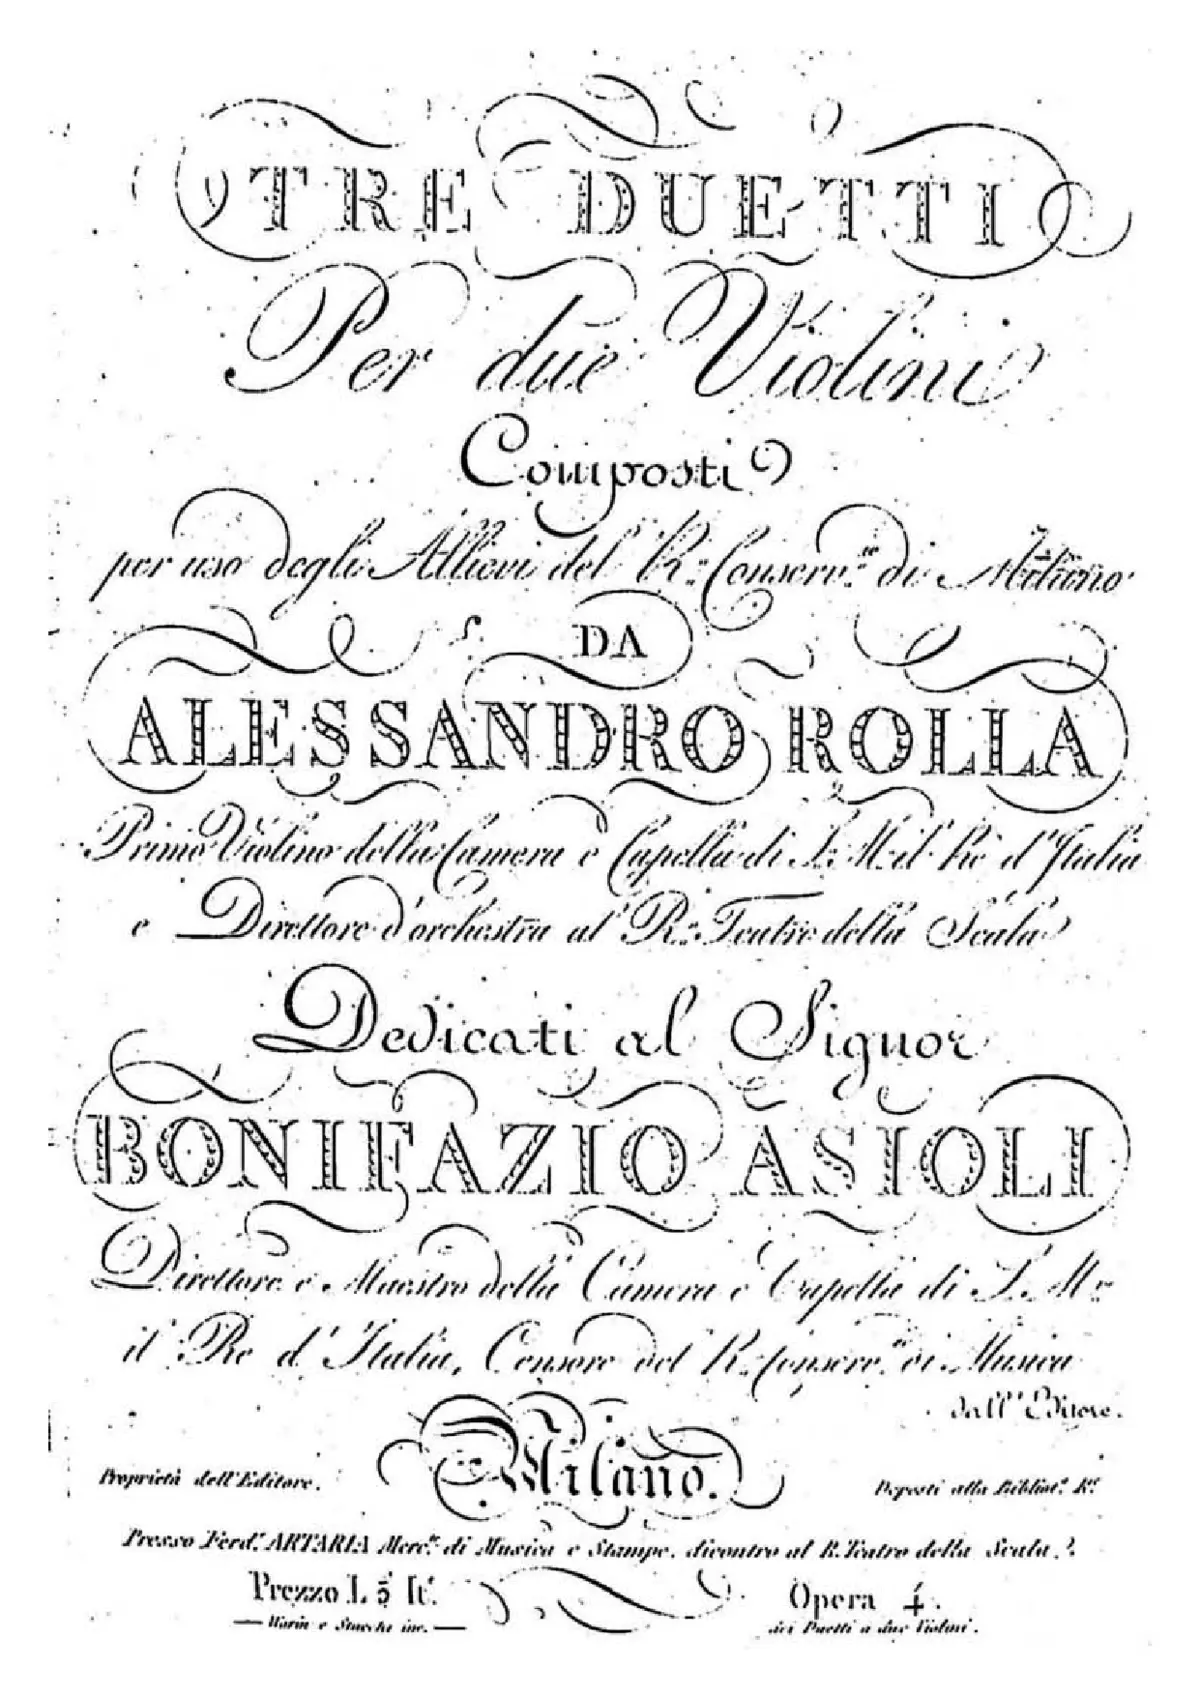 TRE DUETTI
Per due Violini
Composti
per uso degli Allievi del R.º Conserv.to di Milano
DA
ALESSANDRO ROLLA
Primo Violino della Camera e Capella di S. M. il Rè d'Italia
e Direttore d'orchestra al R.º Teatro della Scala
Dedicati al Signor
BONIFAZIO ASIOLI
Direttore e Maestro della Camera e Capella di S. M.
il Re d'Italia, Censore del R. Conserv.º di Musica
dall'Editore.
Milano.
Proprietà dell'Editore.
Deposti alla Bibliot.ª R.ª
Presso Ferd.º ARTARIA Merc.te di Musica e Stampe, dicontro al R. Teatro della Scala.
Prezzo L 5 It.
Opera 4.
e Stucchi inc.
dei Duetti a due Violini.